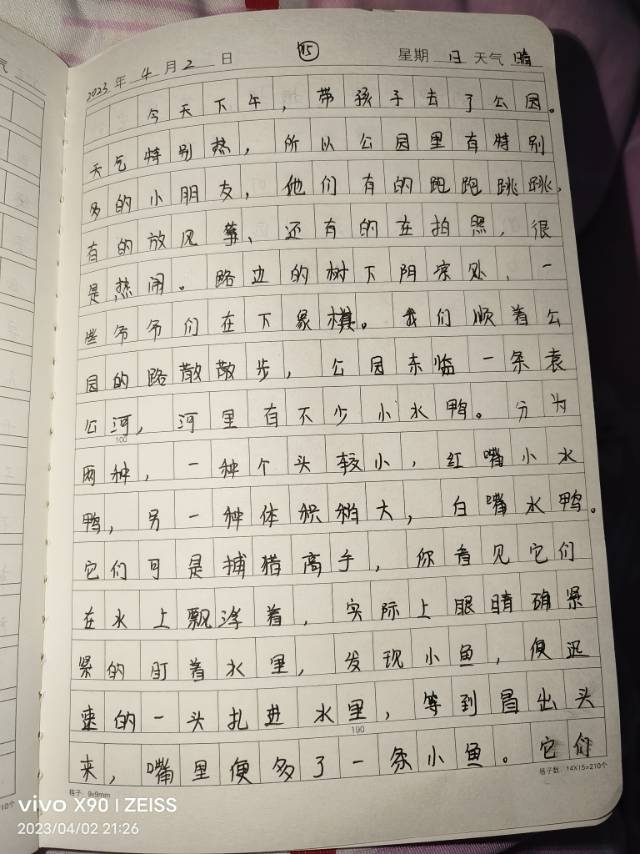 2023年 4月 2日 ⑮ 星期 日 天气 晴
今天下午，带孩子去了公园。
天气特别热，所以公园里有特别
多的小朋友，他们有的跑跑跳跳，
有的放风筝、还有的在拍照，很
是热闹。路边的树下阴凉处，一
些爷爷们在下象棋。我们顺着公
园的路散散步，公园东临一条袁
公河，河里有不少小水鸭。分为
100
两种，一种个头较小，红嘴小水
鸭，另一种体积稍大，白嘴水鸭。
它们可是捕猎高手，你看见它们
在水上飘浮着，实际上眼睛确紧
紧的盯着水里，发现小鱼，便迅
速的一头扎进水里，等到冒出头
190
来，嘴里便多了一条小鱼。它们
格子：9x9mm 格子数：14X15=210个
气
10个
vivo X90 | ZEISS
2023/04/02 21:26